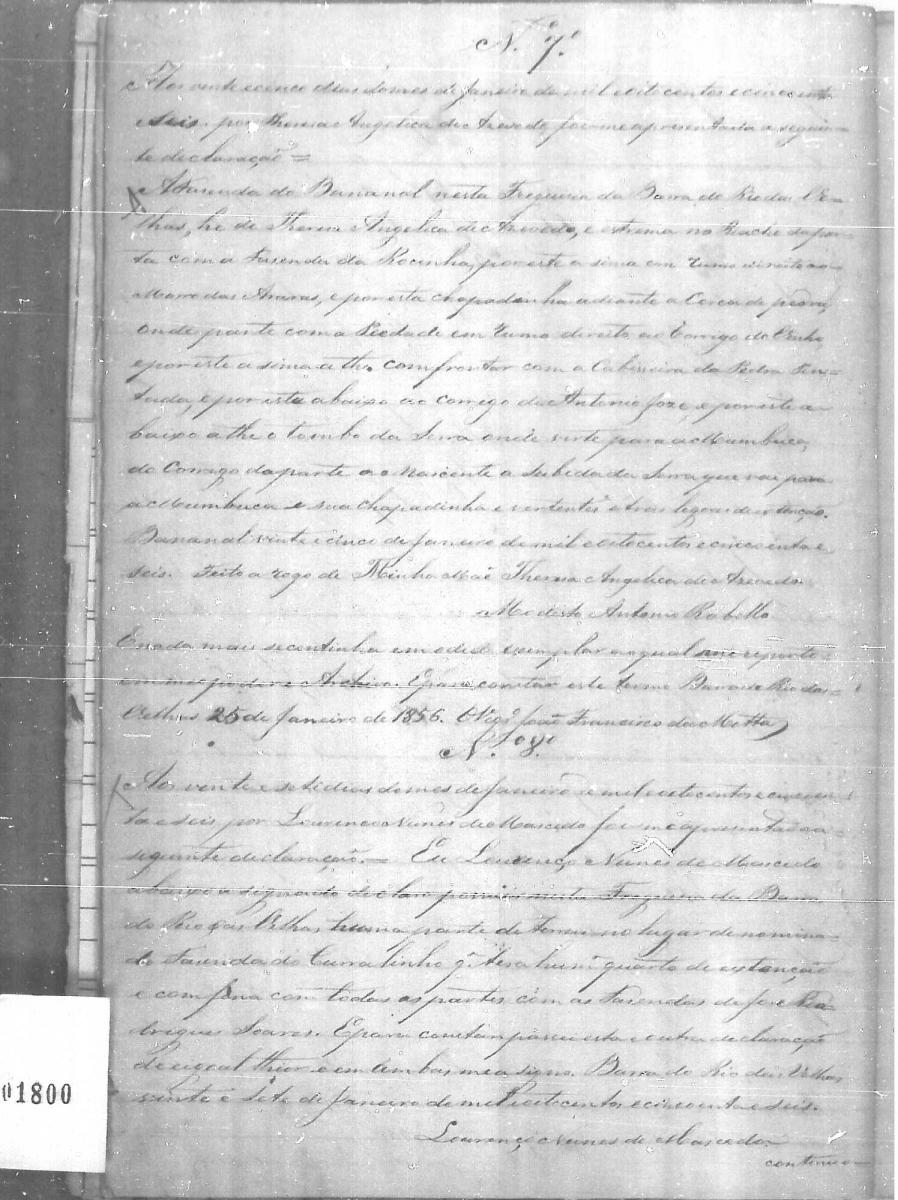 N.º 7.º
Aos vinte e cinco dias do mes de Janeiro de mil oito centos e cincoenta
e Seis. por Theresa Angelica de Azevedo foi me apresentada a seguin=
te declaração =
A Fasenda do Bananal nesta Freguesia da Barra do Rio das Ve=
lhas, he de Theresa Angelica de Azevedo, e estrema no Riacho da por
ta com a Fasenda da Rocinha, por este a sima em rumo direito ao
Morro das Araras, e por esta chapadinha adiante a Cerca de pedra,
onde parte com a Piedade em rumo direito, ao Corrigo do
e por este a sima athe comfrontar com a Cabisseira da Pedra
e por este abaixo ao Corrego de Antonio Joze e por este a
baixo athe o tombo da Serra onde verte para a Mumbuca,
do Corrigo da parte ao Nascente a Subida da Serra que vai para
a Mumbuca e sua chapadinha e vertentes e tres legoas de extenção.
Bananal vinte e cinco de Janeiro de mil e oito centos e cincoenta e
seis. Feito a rogo de Minha Mai Theresa Angelica de Azevedo
Modesto Antonio Rabello
E nada mais se continha em o dito exemplar ao qual me reporto
em meo poder e Archivo. E para constar este termo Barra do Rio das=
Velhas 25 de Janeiro de 1856. O Vigr.º João Francisco da Motta
N.º 8.º
Aos vinte e sete dias do mes de Janeiro de mil oito centos e cincoen
ta e seis por Lourenço Nunes de Macedo foi me apresentado a
seguinte declaração. — Eu Lourenço Nunes de Macedo
abaixo a signado declaro possuir nesta Freguesia da Barra
do Rio das Velhas huma parte de terras no lugar denomina=
do Fasenda do Curralinho q. tera hum quarto de extenção
e comfina com todas as partes com as Fasendas de Joze Ro
drigues Soares. E para constar passei esta e outra declaração
de igual theor e em ambas me a signo. Barra do Rio das Velhas
vinte e Sete de Janeiro de mil e oito centos e cincoenta e seis.
Lourenço Nunes de Macedo
continua
01800